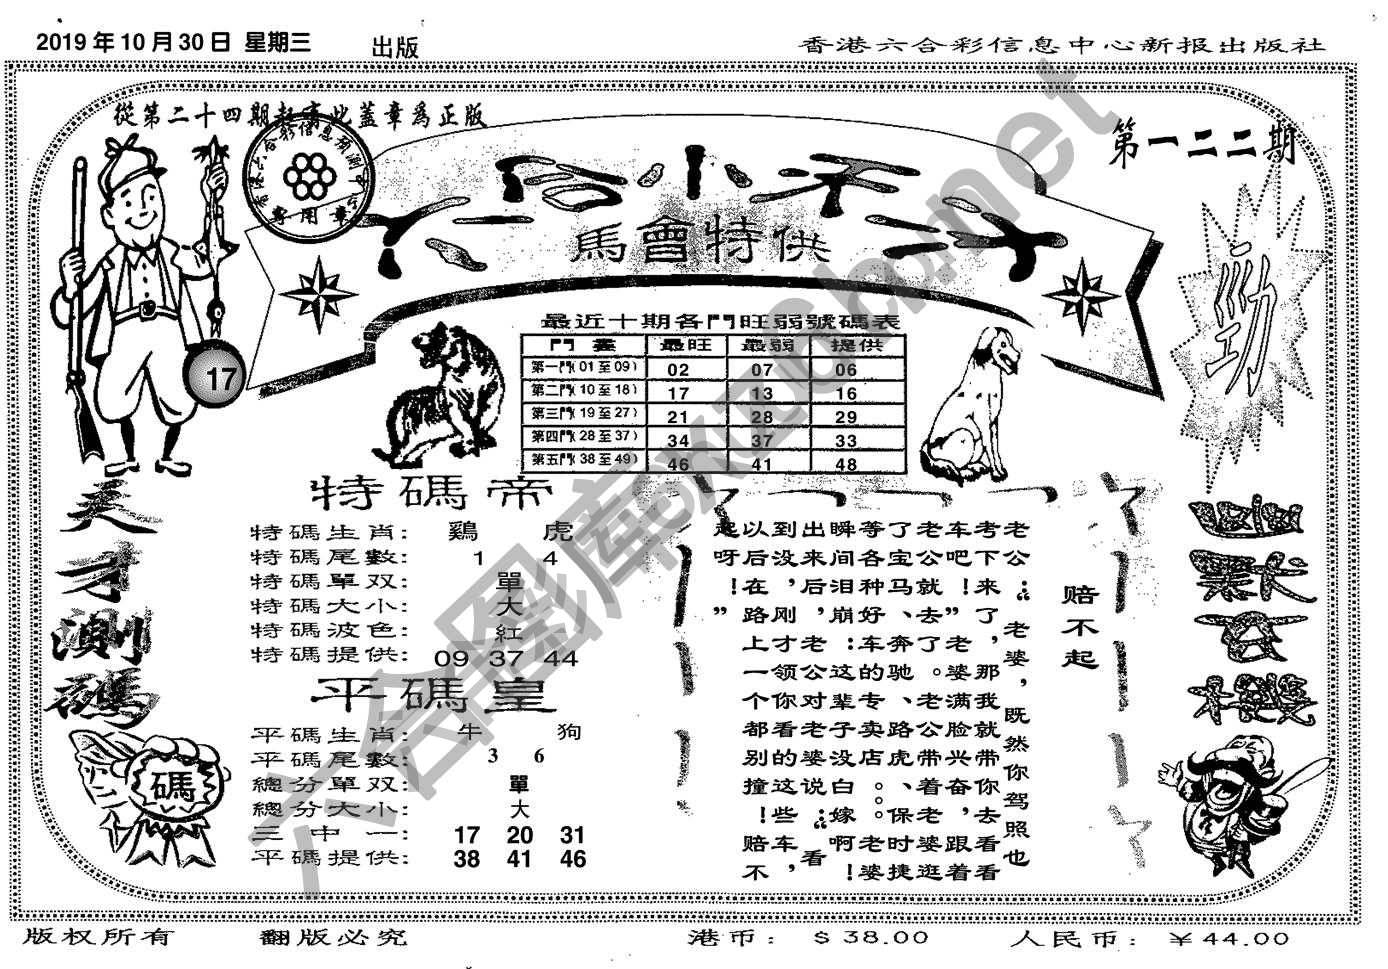 2019年10月30日 星期三
出版
香港六合彩信息中心新报出版社
從第二十四期起寄此蓋章為正版
第一二二期
馬會特供
專用章
17
勁
最近十期各門旺弱號碼表
門數 最旺 最弱 提供
第一門(01至09) 02 07 06
第二門(10至18) 17 13 16
第三門(19至27) 21 28 29
第四門(28至37) 34 37 33
第五門(38至49) 46 41 48
天才測碼
碼
特碼帝
特碼生肖: 鷄 虎
特碼尾數: 1 4
特碼單双: 單
特碼大小: 大
特碼波色: 紅
特碼提供: 09 37 44
平碼皇
平碼生肖: 牛 狗
平碼尾數: 3 6
總分單双: 單
總分大小: 大
三中一: 17 20 31
平碼提供: 38 41 46
赔不起
老公:“老婆,既然你驾照也
考下来了,那我就带你去看看
车吧!”老婆满脸兴奋,跟着
老公就去了。老公带着老婆逛
了宝马、奔驰、路虎、保时捷
等各种好车的专卖店。。老婆
瞬间泪崩:这辈子没白嫁啊!
出来后,老公对老婆说:“看
到没,刚才领你看的这些车,
以后在路上一个都别撞!赔不
起呀!”
六合图库 .net
版权所有
翻版必究
港币: $38.00
人民币: ￥44.00